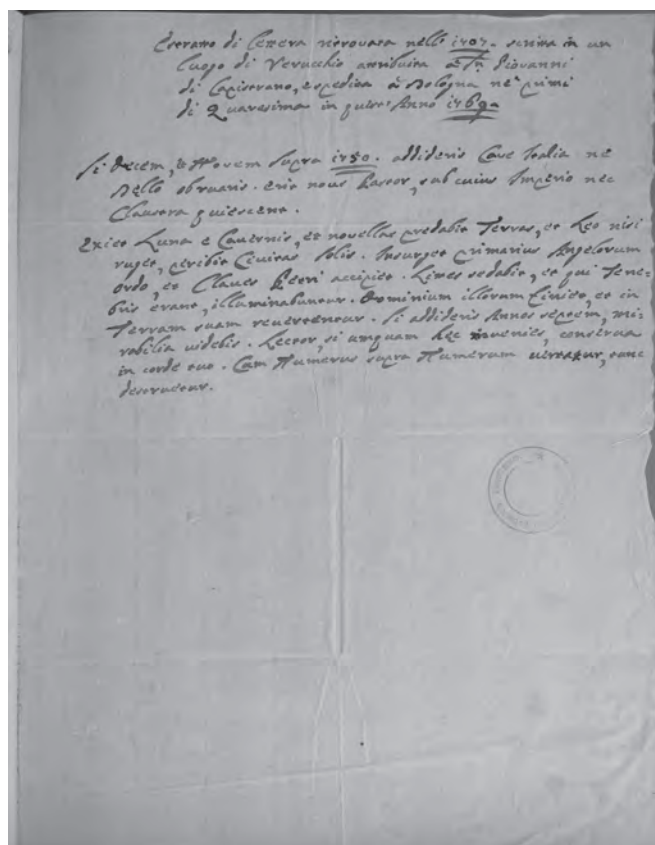 Estratto di Lettera ritrovata nell' 1707. scritta in un
Luogo di Verucchio attribuita à Sn Giovanni
di Capistrano, e spedita à Bologna ne' primi
di Quaresima in quest' Anno 1769.
Si decem, & Novem supra 1750. addideris Cave Italia ne
Bello obruaris. erit novus Pastor, sub cuius Imperio nec
Claustra quiescent.
Exiet Luna e Cavernis, et novellas predabit Terras, et Leo nisi
ruget, peribit Civitas Solis. Insurget primarius Angelorum
ordo, et Claves Petri accipiet. Lites sedabit, et qui Tene=
bris erant, illuminabuntur. Dominium illorum Finiet, et in
Terram suam revertentur. Si addideris Annos septem, mi=
rabilia videbis. Lector, si umquam hec invenies, conserva
in corde tuo. Cum Numerus supra Numerum vertatur, tunc
destruetur.